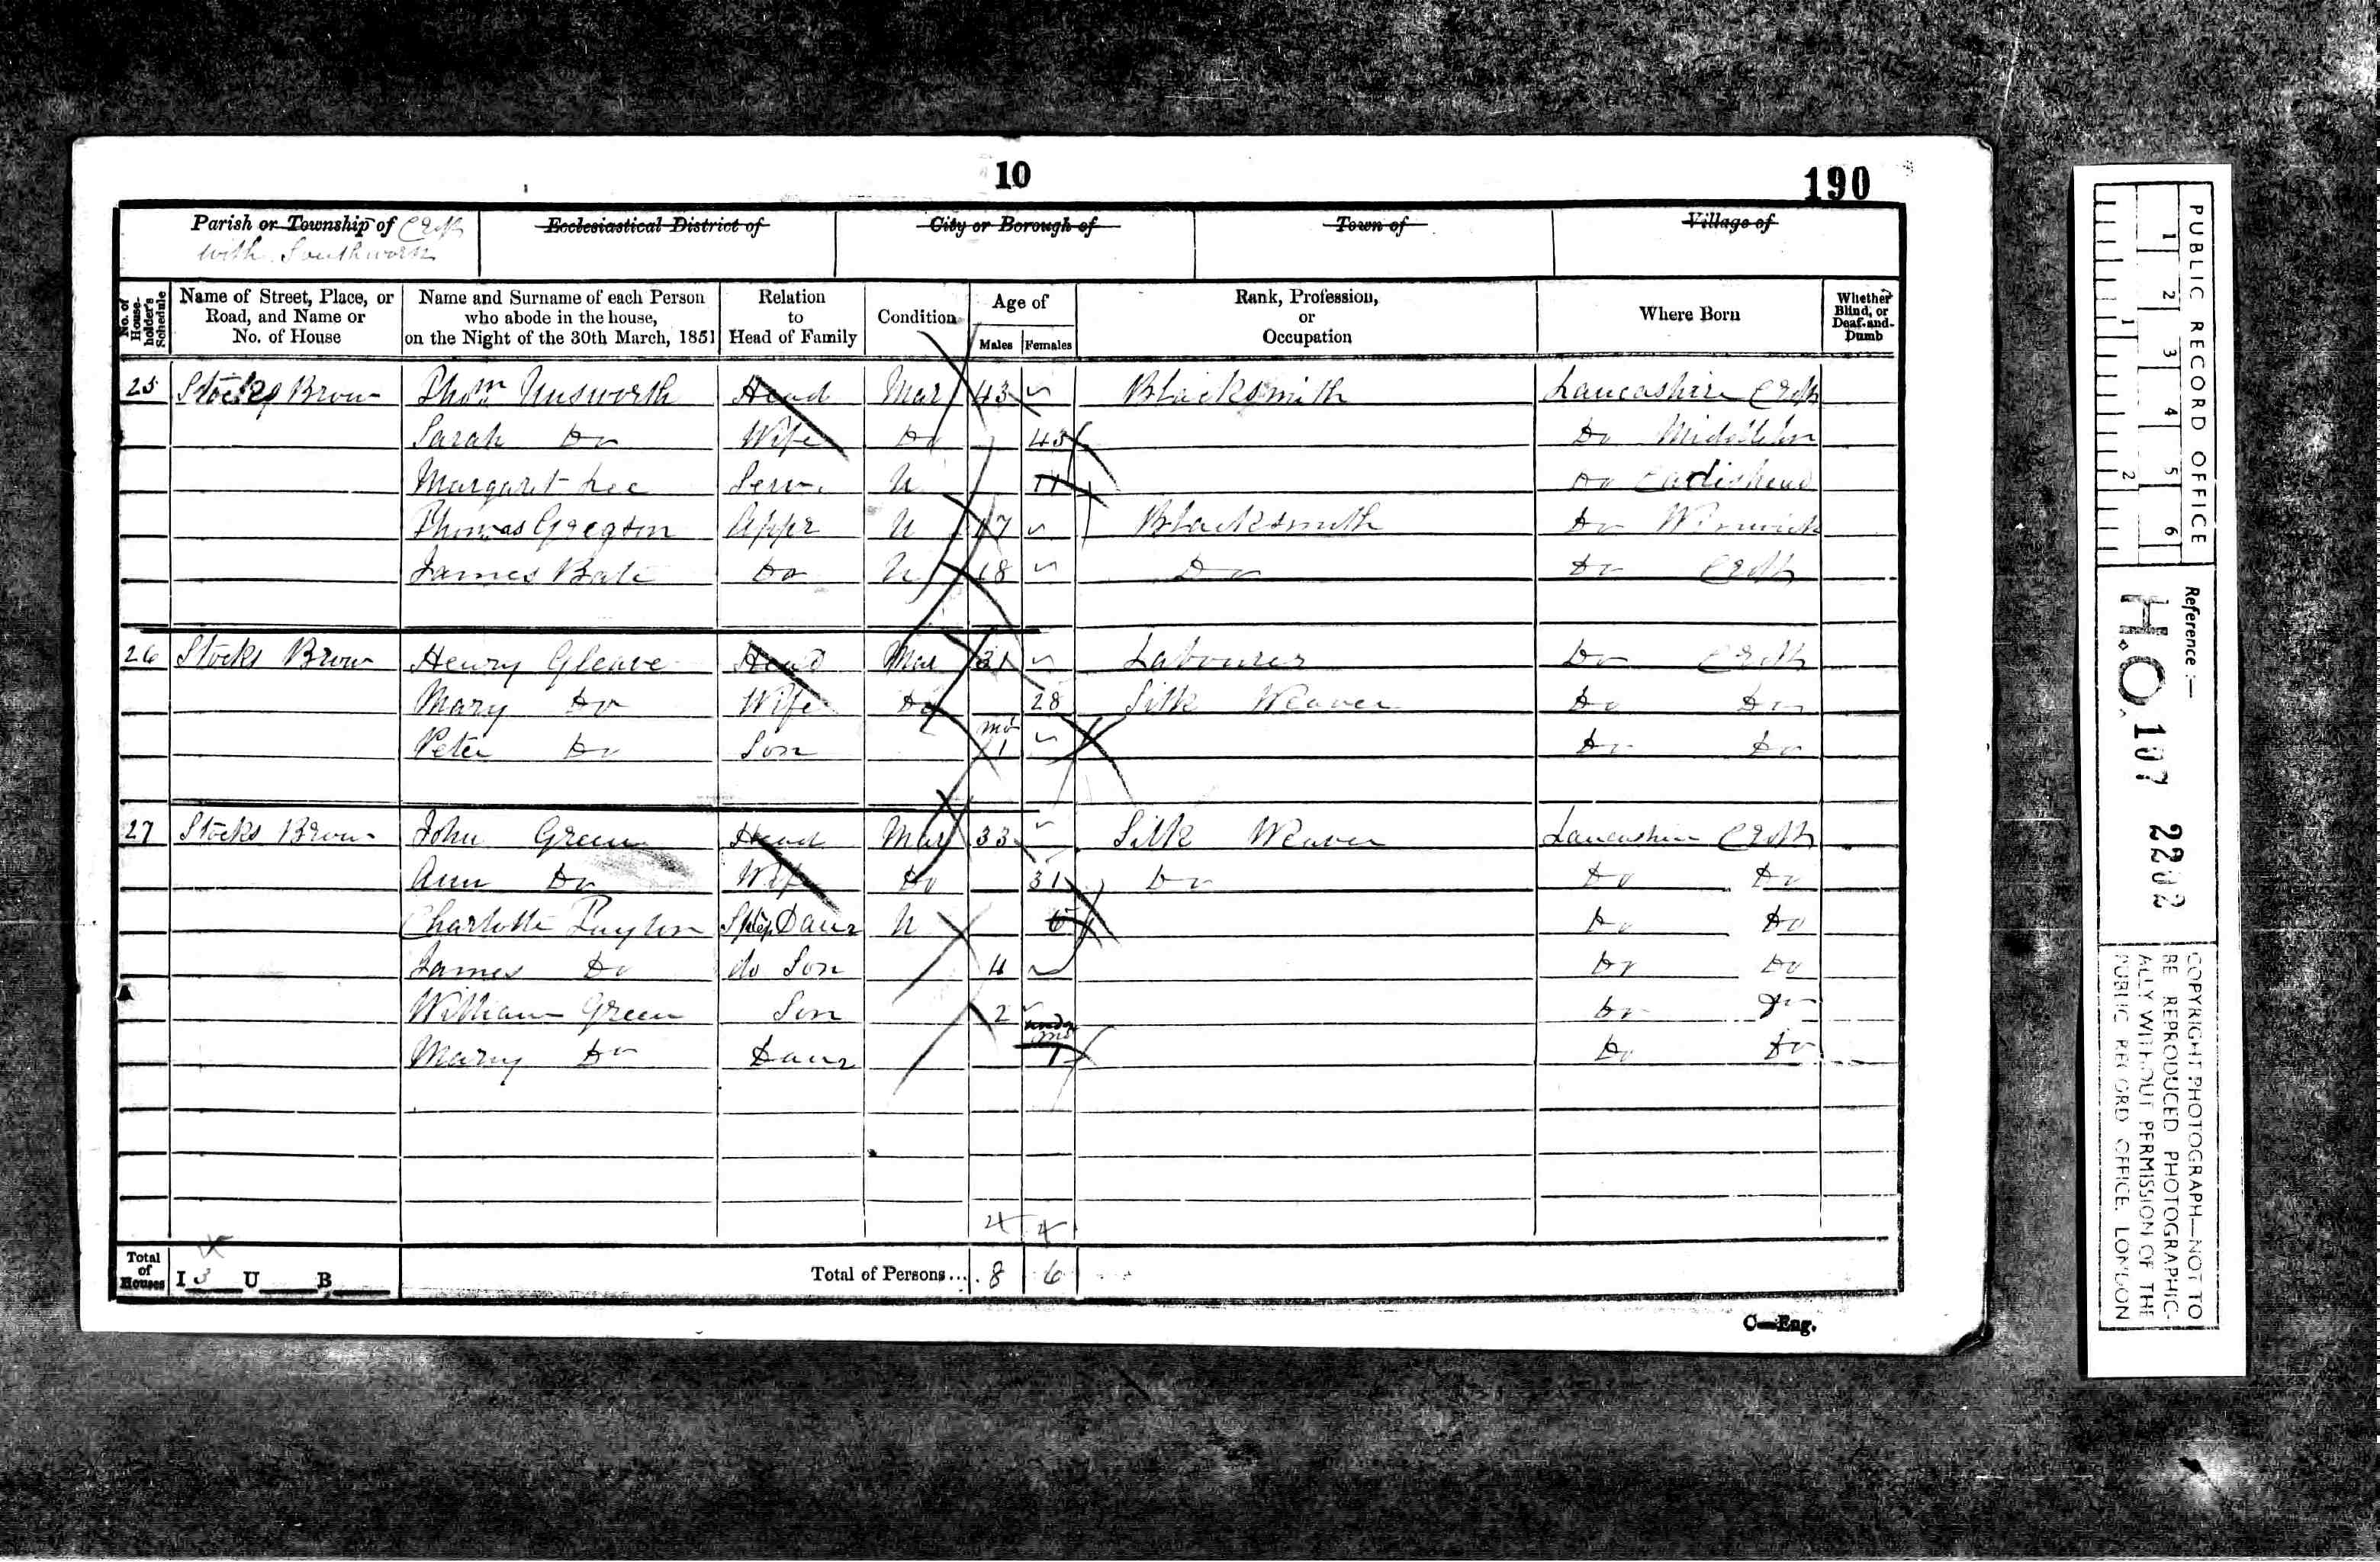 10
190
Parish or Township of Croft
with Southworth
Ecclesiastical District of
City or Borough of
Town of
Village of
No. of House-holder's Schedule
Name of Street, Place, or Road, and Name or No. of House
Name and Surname of each Person who abode in the house, on the Night of the 30th March, 1851
Relation to Head of Family
Condition
Age of
Males
Females
Rank, Profession, or Occupation
Where Born
Whether Blind, or Deaf-and-Dumb
25 Stocks Brow Thos. Unsworth Head Mar 43 Blacksmith Lancashire Croft
Sarah Do Wife Do 43 Do Middleton
Margaret Lee Serv. U 11 Do Cadishead
Thomas Gregson Appr U 17 Blacksmith Do Winwick
James Bate Do U 18 Do Do Croft
26 Stocks Brow Henry Gleave Head Mar 31 Labourer Do Croft
Mary Do Wife Do 28 Silk Weaver Do Do
Peter Do Son mo 1 Do Do
27 Stocks Brow John Green Head Mar 33 Silk Weaver Lancashire Croft
Ann Do Wife Do 31 Do Do Do
Charlotte Step Daur U 6 Do Do
James Do do Son 4 Do Do
William Green Son 2 Do Do
Mary Do Daur under mo 1 Do Do
4 4
Total of Houses I 3 U B
Total of Persons... 8 6
C—Eng.
PUBLIC RECORD OFFICE
1 2 3 4 5 6
1 2
Reference :—
H.O. 107 2202
COPYRIGHT PHOTOGRAPH—NOT TO
BE REPRODUCED PHOTOGRAPHIC-
ALLY WITHOUT PERMISSION OF THE
PUBLIC RECORD OFFICE, LONDON